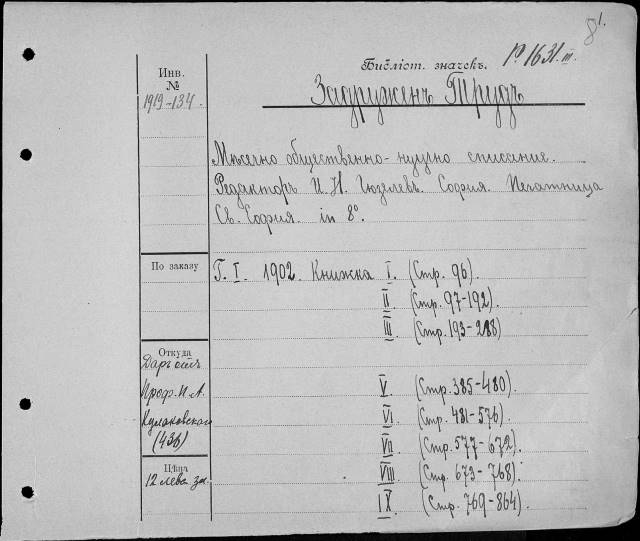 81.
Библіот. значекъ. Р. 1631. III.
Инв.
№
1919-134.
Задруженъ Трудъ
Мѣсечно обществено-научно списание.
Редакторъ И. Н. Гюзлевъ. София. Печатница
Св. София. in 8°.
По заказу
Г. I. 1902. Книжка I. (Стр. 96).
II (Стр. 97-192).
III (Стр. 193-288)
Откуда
Даръ отъ
Проф. П. А.
Кулаковскаго
(436)
V. (Стр. 385-480).
VI (Стр. 481-576).
VII (Стр. 577-672).
Цѣна
12 лева зл.
VIII (Стр. 673-768).
IX. (Стр. 769-864).